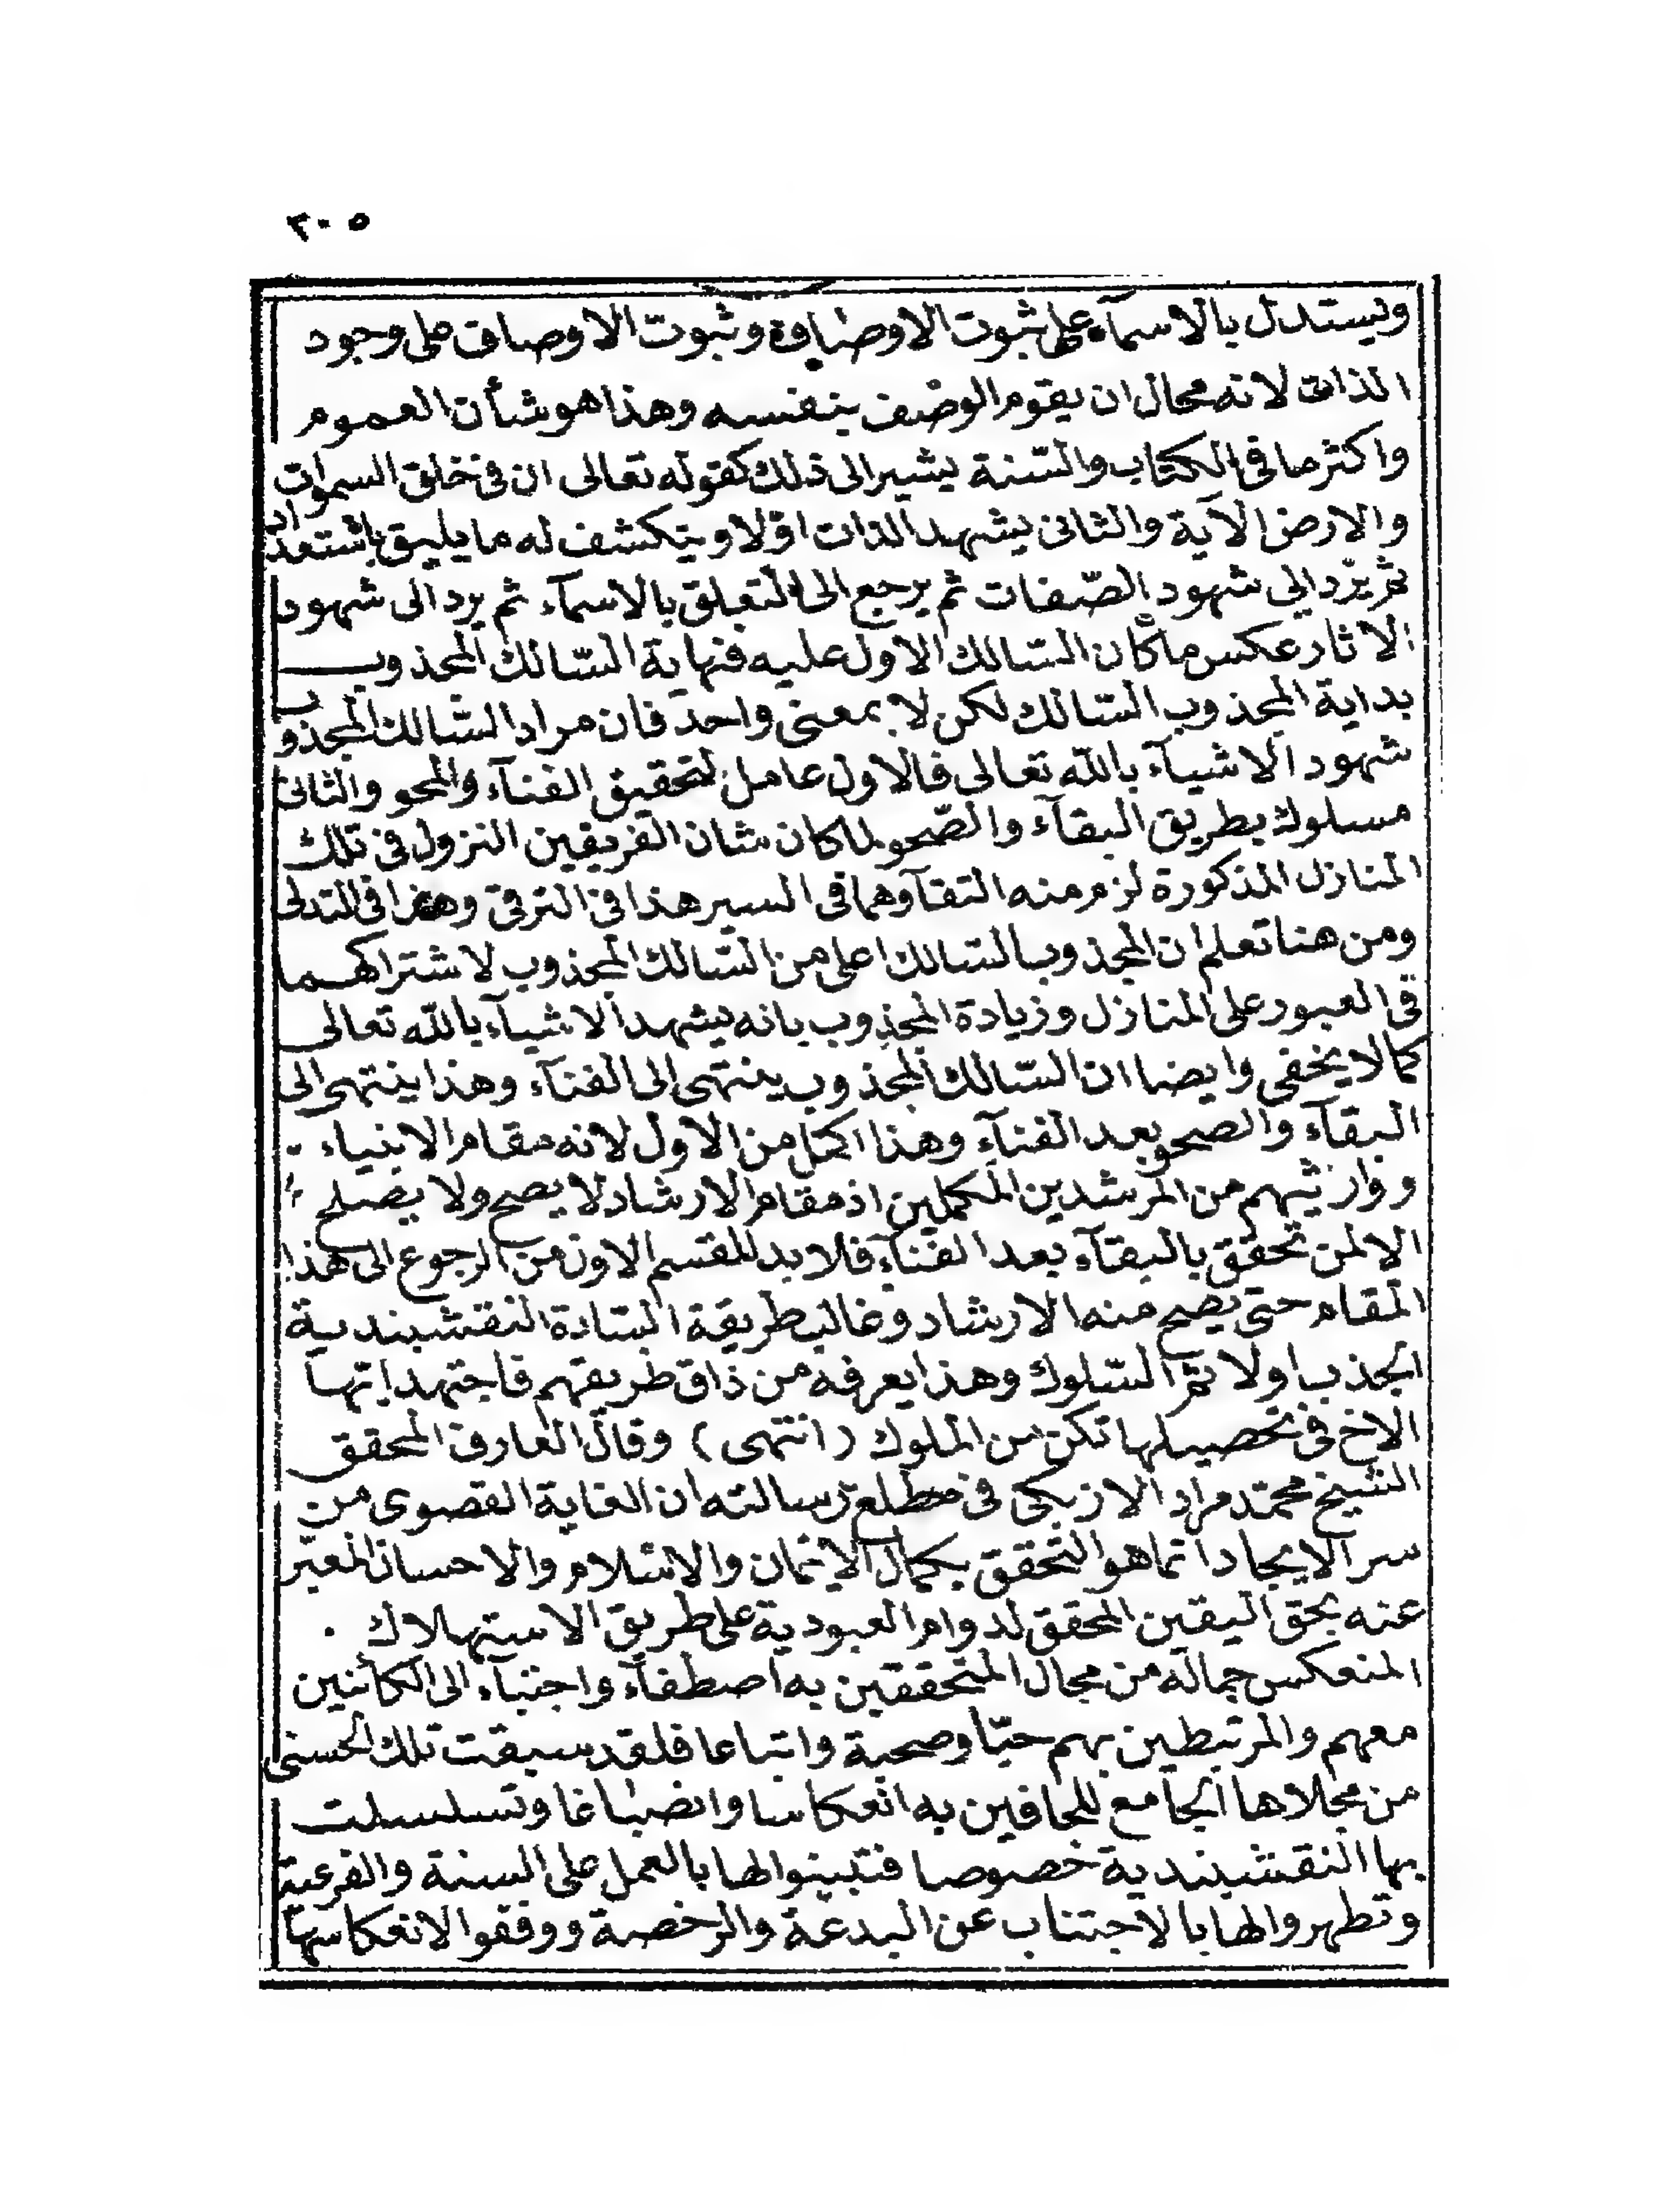 ٣٠٥
ويستدل بالاسمآء على ثبوت الاوصاف وثبوت الاوصاف على وجود
الذات لانه محال ان يقوم الوصف بنفسه وهذا هو شأن العموم
واكثر ما فى الكتاب والسّنة يشير الى ذلك كقوله تعالى ان فى خلق السموات
والارض الآية والثانى يشهد الذات اوّلا ويتكشف له ما يليق باستعداد
ثم يردّ الى شهود الصّفات ثم يرجع الى التعلق بالاسمآء ثم يرد الى شهود
الاثار عكس ما كان السّالك الاول عليه فنهاية السّالك المجذوب
بداية المجذوب السّالك لكن لا بمعنى واحد فان مراد السّالك المجذوب
شهود الاشيآء بالله تعالى فالاول عامل لتحقيق الفنآء والمحو والثانى
مسلوك بطريق البقآء والصّحو لما كان شان الفريقين النزول فى تلك
المنازل المذكورة لزم منه التقآوهما فى السير هذا فى الترقى وهذا فى التدلى
ومن هنا تعلم ان المجذوب السّالك اعلى من السّالك المجذوب لاشتراكهما
فى العبور على المنازل وزيادة المجذوب بانه يشهد الاشيآء بالله تعالى
كما لا يخفى وايضا ان السّالك المجذوب ينتهى الى الفنآء وهذا ينتهى الى
البقآء والصحو بعد الفنآء وهذا اكمل من الاول لانه مقام الانبياء
ووارثيهم من المرشدين المكملين اذ مقام الارشاد لا يصح ولا يصلح
الا لمن تحقق بالبقآء بعد الفنآء فلا بد للقسم الاول من الرجوع الى هذا
المقام حتى يصح منه الارشاد وغالب طريقة السّادة النقشبندية
الجذب اولا ثم السّلوك وهذا يعرفه من ذاق طريقهم فاجتهد ايّها
الاخ فى تحصيلها تكن من الملوك (انتهى) وقال العارف المحقق
الشيخ محمّد مراد الازبكى فى مطلع رسالته ان الغاية القصوى من
سر الايجاد انما هو التحقق بكمال الايمان والاسلام والاحسان المعبر
عنه بحق اليقين المحقق لدوام العبودية على طريق الاستهلاك
المنعكس جماله من مجال المتحققين به اصطفآء واجتبآء الى الكائنين
معهم والمرتبطين بهم حبّا وصحبة واتباعا فلقد سبقت تلك الحسنى
من مجلاها الجامع للحافين به انعكاسا وانصباغا وتسلسلت
بها النقشبندية خصوصا فتبينوا لها بالعمل على السنة والفرعية
وتطهروا لها بالاجتناب عن البدعة والرخصة ووفقوا لانعكاسها